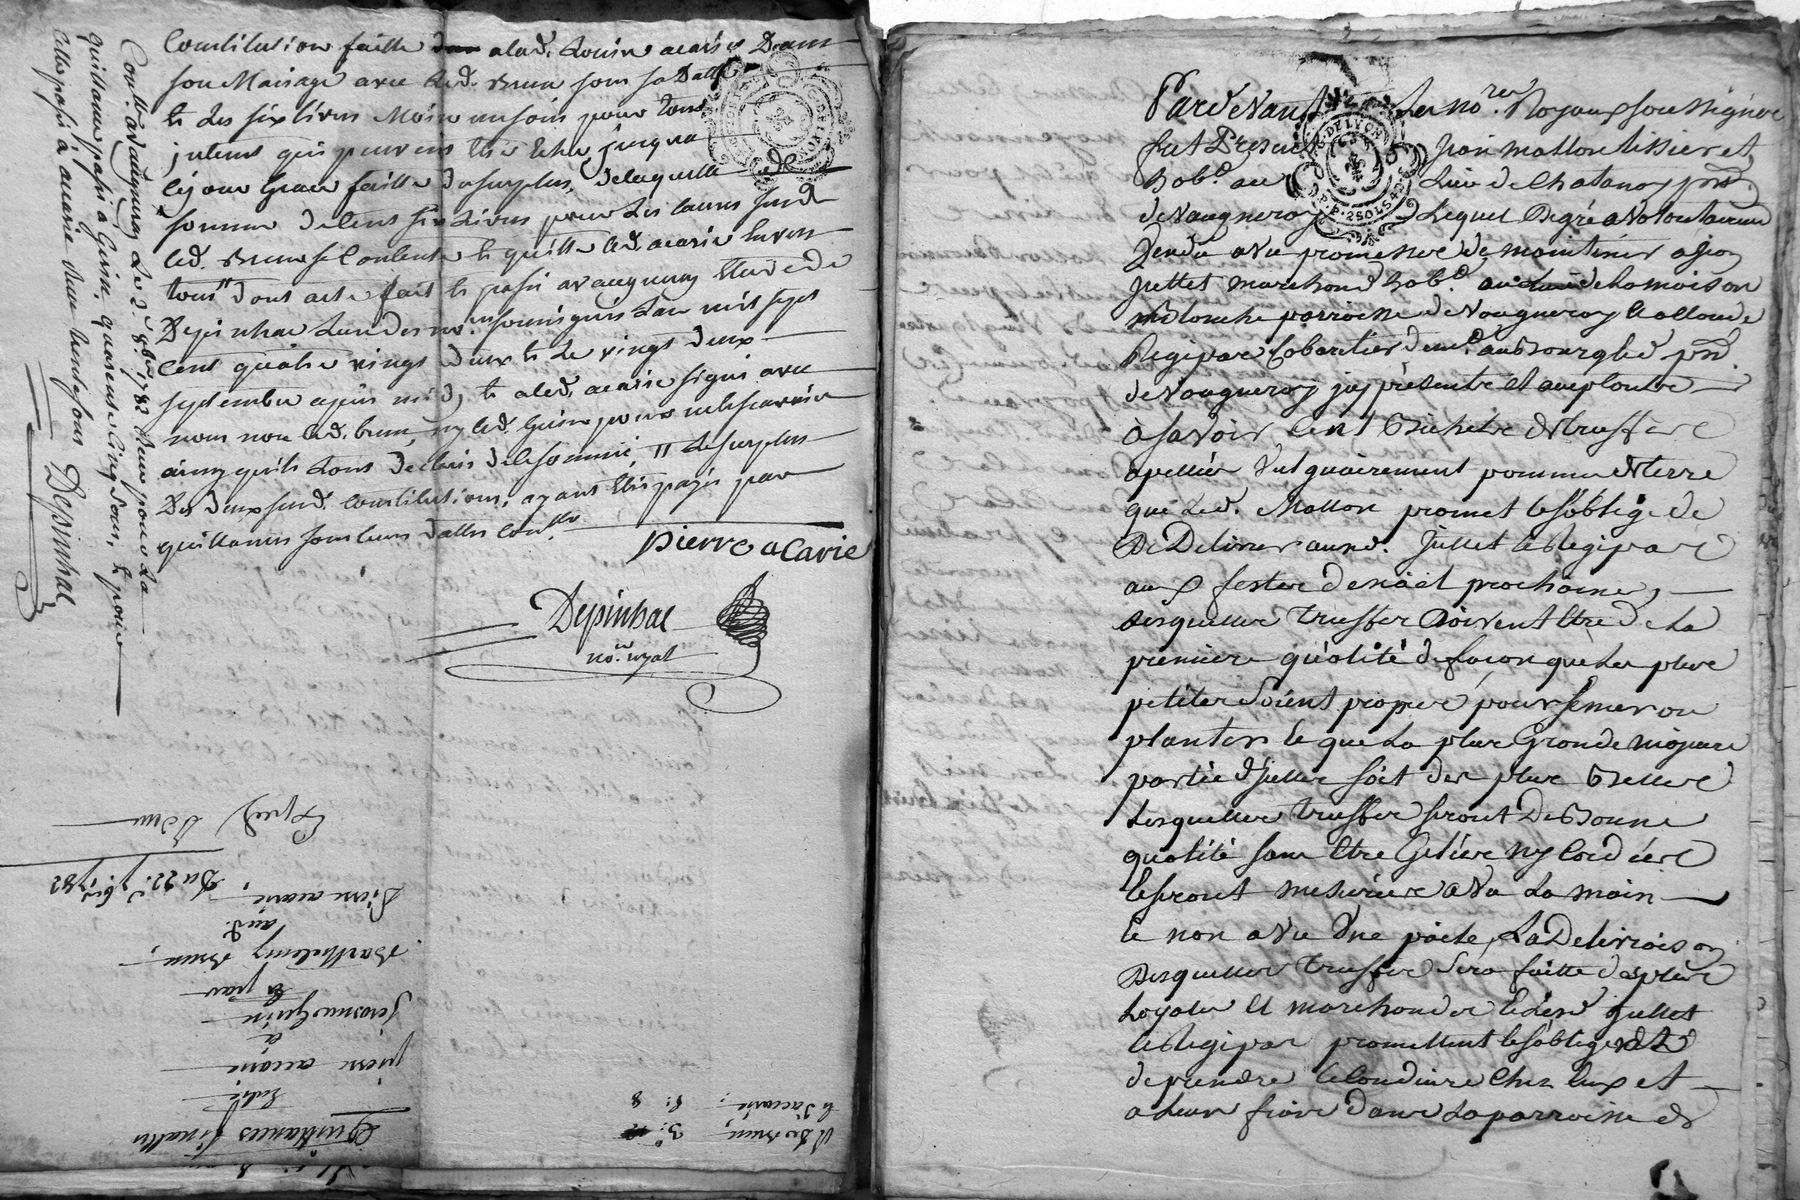 Constitution faitte alad. Louise acarie Dans
son Mariage avec led. Brun sous sa Datte
et les six livres Moins un sois pour tous
interets qui peuvent être echus jusqua
ce jour Grace faitte du surplus, delaquelle
somme de cent six Livres pour les causes susd.
led. Brun se Contente et quitte led. acarie Envers
tous dont acte fait et passé a vaugneray Etude de
Depinhac L'un des no.res soussignés L'an mil sept
cent quatre vingt deux et Le vingt deux
septembre apres midy, et a led. acarie signé avec
nous non led. brun, ny led. Guerin pour ne le scavoir
ainsy qu'ils L'ont declaré de le sommé, // Le surplus
Des deux susd. constitutions, ayant Eté payés par
quittances sous leurs dattes Con.llé
pierre acarie
Depinhac
no.re royal
Con.llé a vaugneray Le 2.e 8bre 1782 Reçu pour La
quittance passé a Guerin quarante cinq sous, & pour
celle passé a acarie
Depinhac
Quittances finalles
pierre acarie
à
Guerin
par
Barthelemy Brun,
aud.
Pierre acarie,
Du 22. 7bre 1782
Expéd.
Pardevant Les no.res Royaux soussignés
fut Présent Jean mallon tissier et
hab.t au Lieu de Chatanay psse
de Vaugneray Lequel De gré a Volontairement
Vendu avec promesse de maintenir a Jean
Jullet marchand hab.t au Lieu de la maison
blanche parroisse de Vaugneray et a Claude
Ragipas Cabaretier dem.t au Bourg lad. psse
de Vaugneray icy présents et acceptants
a savoir Cent Bichets de truffes
apellées Vulgairement pomme de terre
que led. Mallon promet et s'oblige de
De Delivrer auxd. Jullet et Ragipas
aux festes de noël prochaines,
Lesquelles truffes doivent Etre de La
premiere qualité de façon que Les plus
petites soient propres pour semer ou
planter et que La plus Grande majeure
partie d'icelles soit des plus Belles
Lesquelles truffes seront De Bonne
qualité sans Etre Gelées ny
et seront mesurées avec La main
et non avec Une paële, La Delivraison
Desquelles truffes sera faitte des plus
Loyales et marchandes et lesd Jullet
et Ragipas promettent et s'obligent
de prendre et Conduire Chez Eux et
a Leurs frais dans La parroisse de